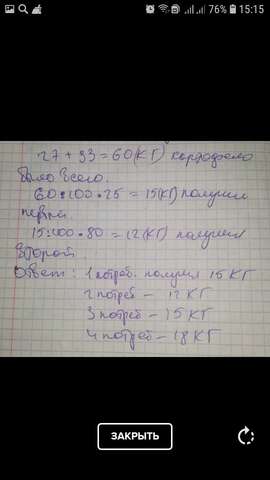 76% 15:15
27 + 33 = 60(КГ) картофеля
было всего.
60:100•25 = 15(КГ) получил
первый.
15:100•80 = 12(КГ) получил
Второй
Ответ: 1 потреб. получил 15 КГ
2 потреб – 12 КГ
3 потреб – 15 КГ
4 потреб – 18 КГ
ЗАКРЫТЬ